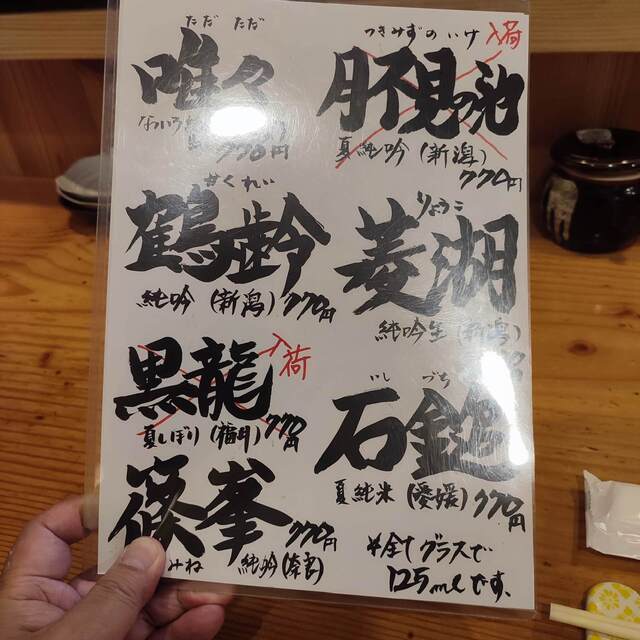 つきみずのいけ
入荷
月不見の池
夏純吟(新潟)
770円
りょうこ
菱湖
純吟生(新潟)
いしづち
石鎚
夏純米(愛媛)770円
※全てグラスで
125mlです。
ただただ
唯々
770円
かくれい
鶴齢
純吟(新潟)770円
入荷
黒龍
夏しぼり(福井)770円
篠峯
みね
純吟(奈良)
770円